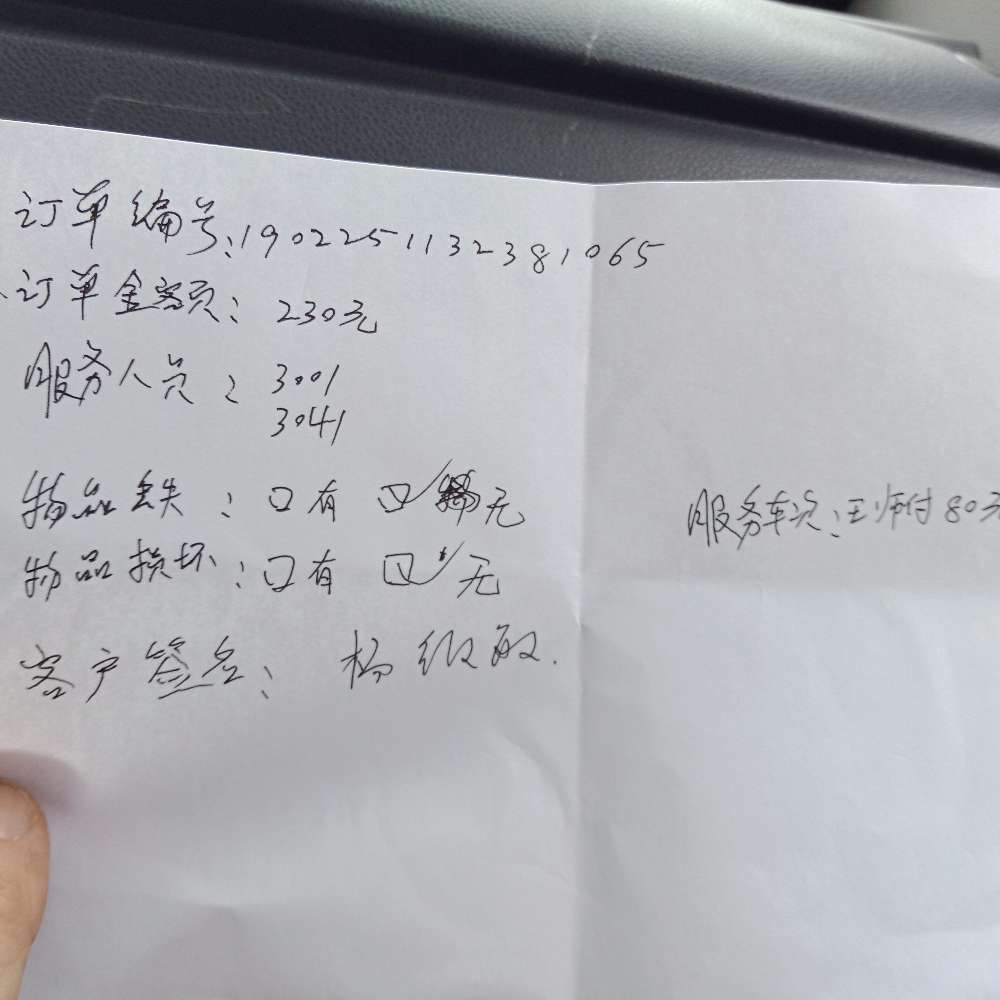 订单编号:1902251132381065
订单金额: 230元
服务人员: 3001
3041
物品丢失: 口有 口✓无
物品损坏: 口有 口✓无
服务车资: 王师付80元
客户签名: 杨敏.